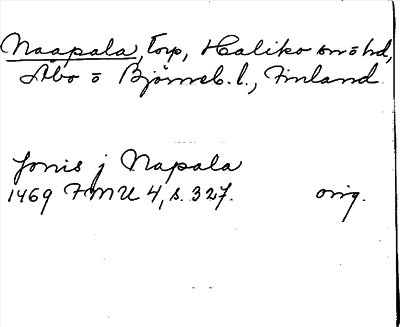 Naapala, torp, Haliko sn o hd,
Åbo o Björneb. l., Finland.
Jonis j Napala
1469 FMU 4, s. 327. orig.